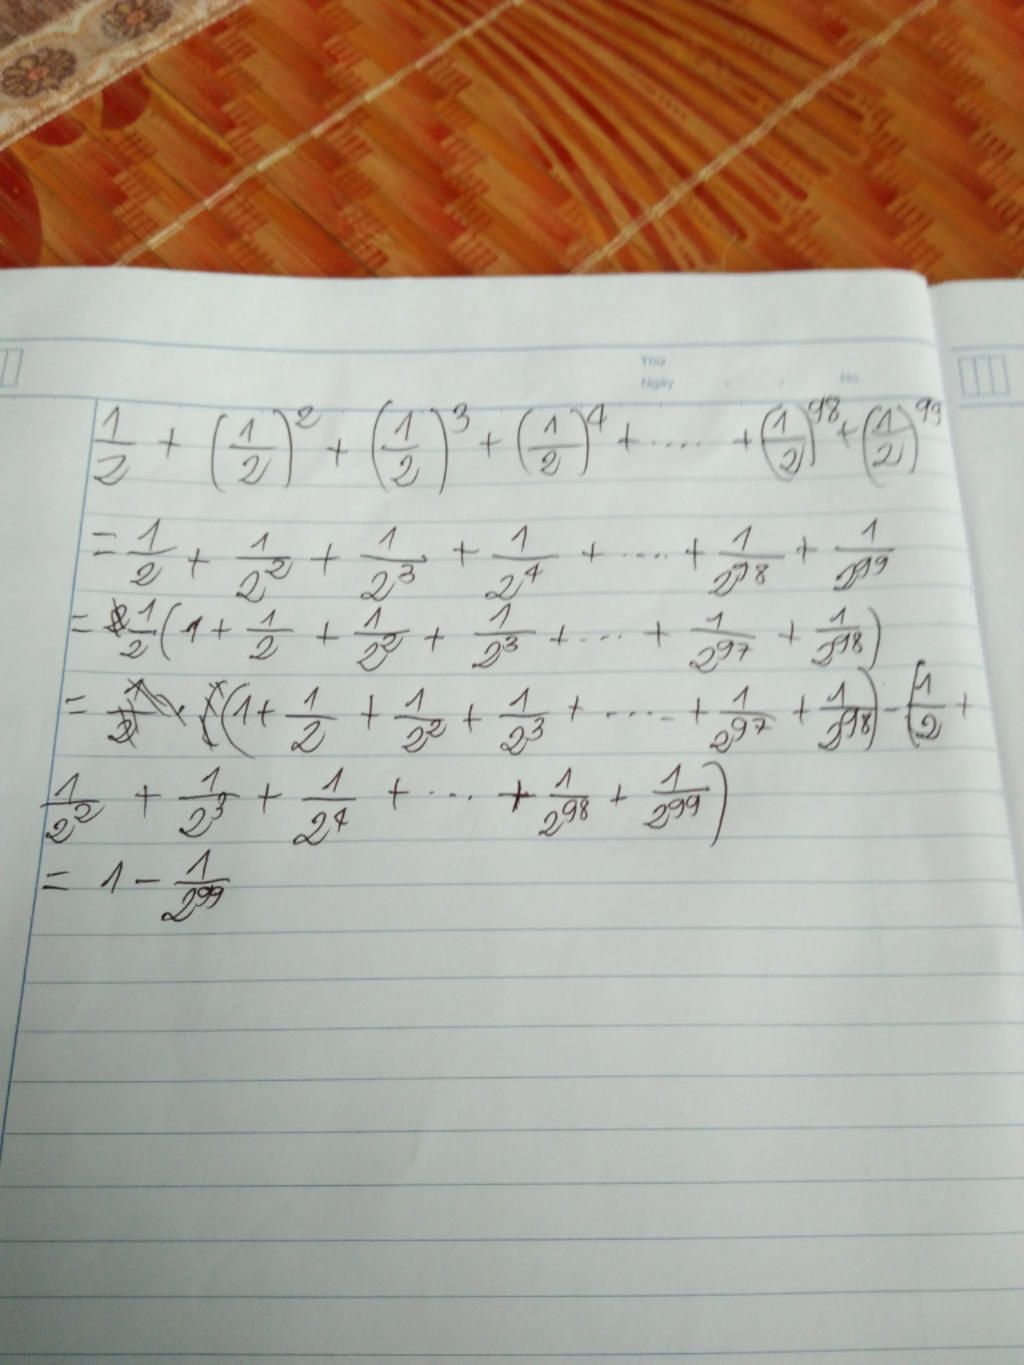 Thứ
Ngày . . No.
1/2 + (1/2)^2 + (1/2)^3 + (1/2)^4 + .... + (1/2)^98 + (1/2)^99
= 1/2 + 1/2^2 + 1/2^3 + 1/2^4 + .... + 1/2^98 + 1/2^99
= 1/2 (1 + 1/2 + 1/2^2 + 1/2^3 + ... + 1/2^97 + 1/2^98)
= (1 + 1/2 + 1/2^2 + 1/2^3 + .... + 1/2^97 + 1/2^98) - (1/2 +
1/2^2 + 1/2^3 + 1/2^4 + ... + 1/2^98 + 1/2^99)
= 1 - 1/2^99